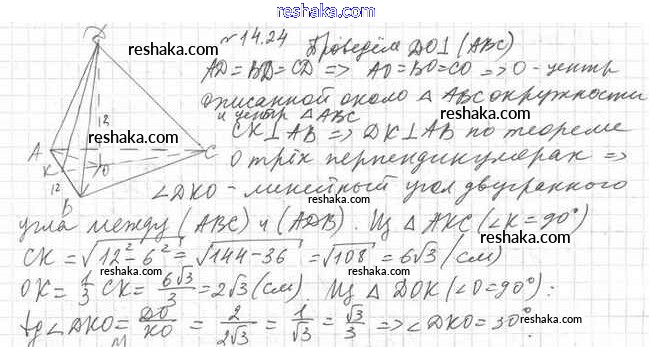 reshaka.com
№14.24 Проведём DO⊥(ABC)
AD=BD=CD => AO=BO=CO => O - центр
описанной около △ABC окружности
и центр △ABC
CK⊥AB => DK⊥AB по теореме
о трёх перпендикулярах =>
∠DKO - линейный угол двугранного
угла между (ABC) и (ADB). Из △AKC (∠K=90°)
CK = √12²-6² = √144-36 = √108 = 6√3 (см)
OK = 1/3 CK = 6√3/3 = 2√3 (см). Из △DOK (∠O=90°):
tg∠DKO = DO/KO = 2/2√3 = 1/√3 = √3/3 => ∠DKO = 30°.
D
A
K
12
B
O
C
reshaka.com
reshaka.com
reshaka.com
reshaka.com
reshaka.com
reshaka.com
reshaka.com
reshaka.com
reshaka.com
reshaka.com